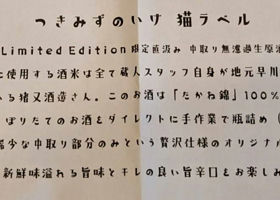 つきみずのいけ 猫ラベル
Limited Edition 限定直汲み 中取り無濾過生原酒
に使用する酒米は全て蔵人スタッフ自身が地元早川
いる猪又酒造さん。このお酒は「たかね錦」100%
しぼりたてのお酒をダイレクトに手作業で瓶詰め（
希少な中取り部分のみという贅沢仕様のオリジナル
新鮮味溢れる旨味とキレの良い旨辛口をお楽しみ